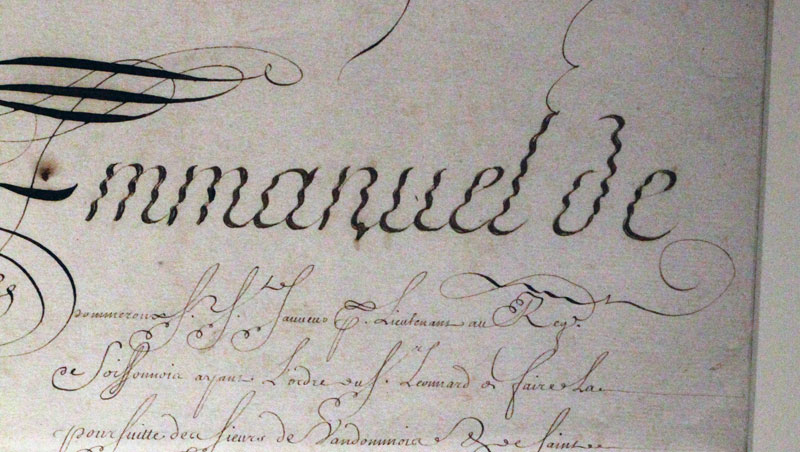 Emmanuel de
pommeroux S. S. Sauveur P. Lieutenant au Reg.
de Soissonnois ayant L'ordre du S. Leonnard de faire La
poursuitte des sieurs de Vandommois & de Saint